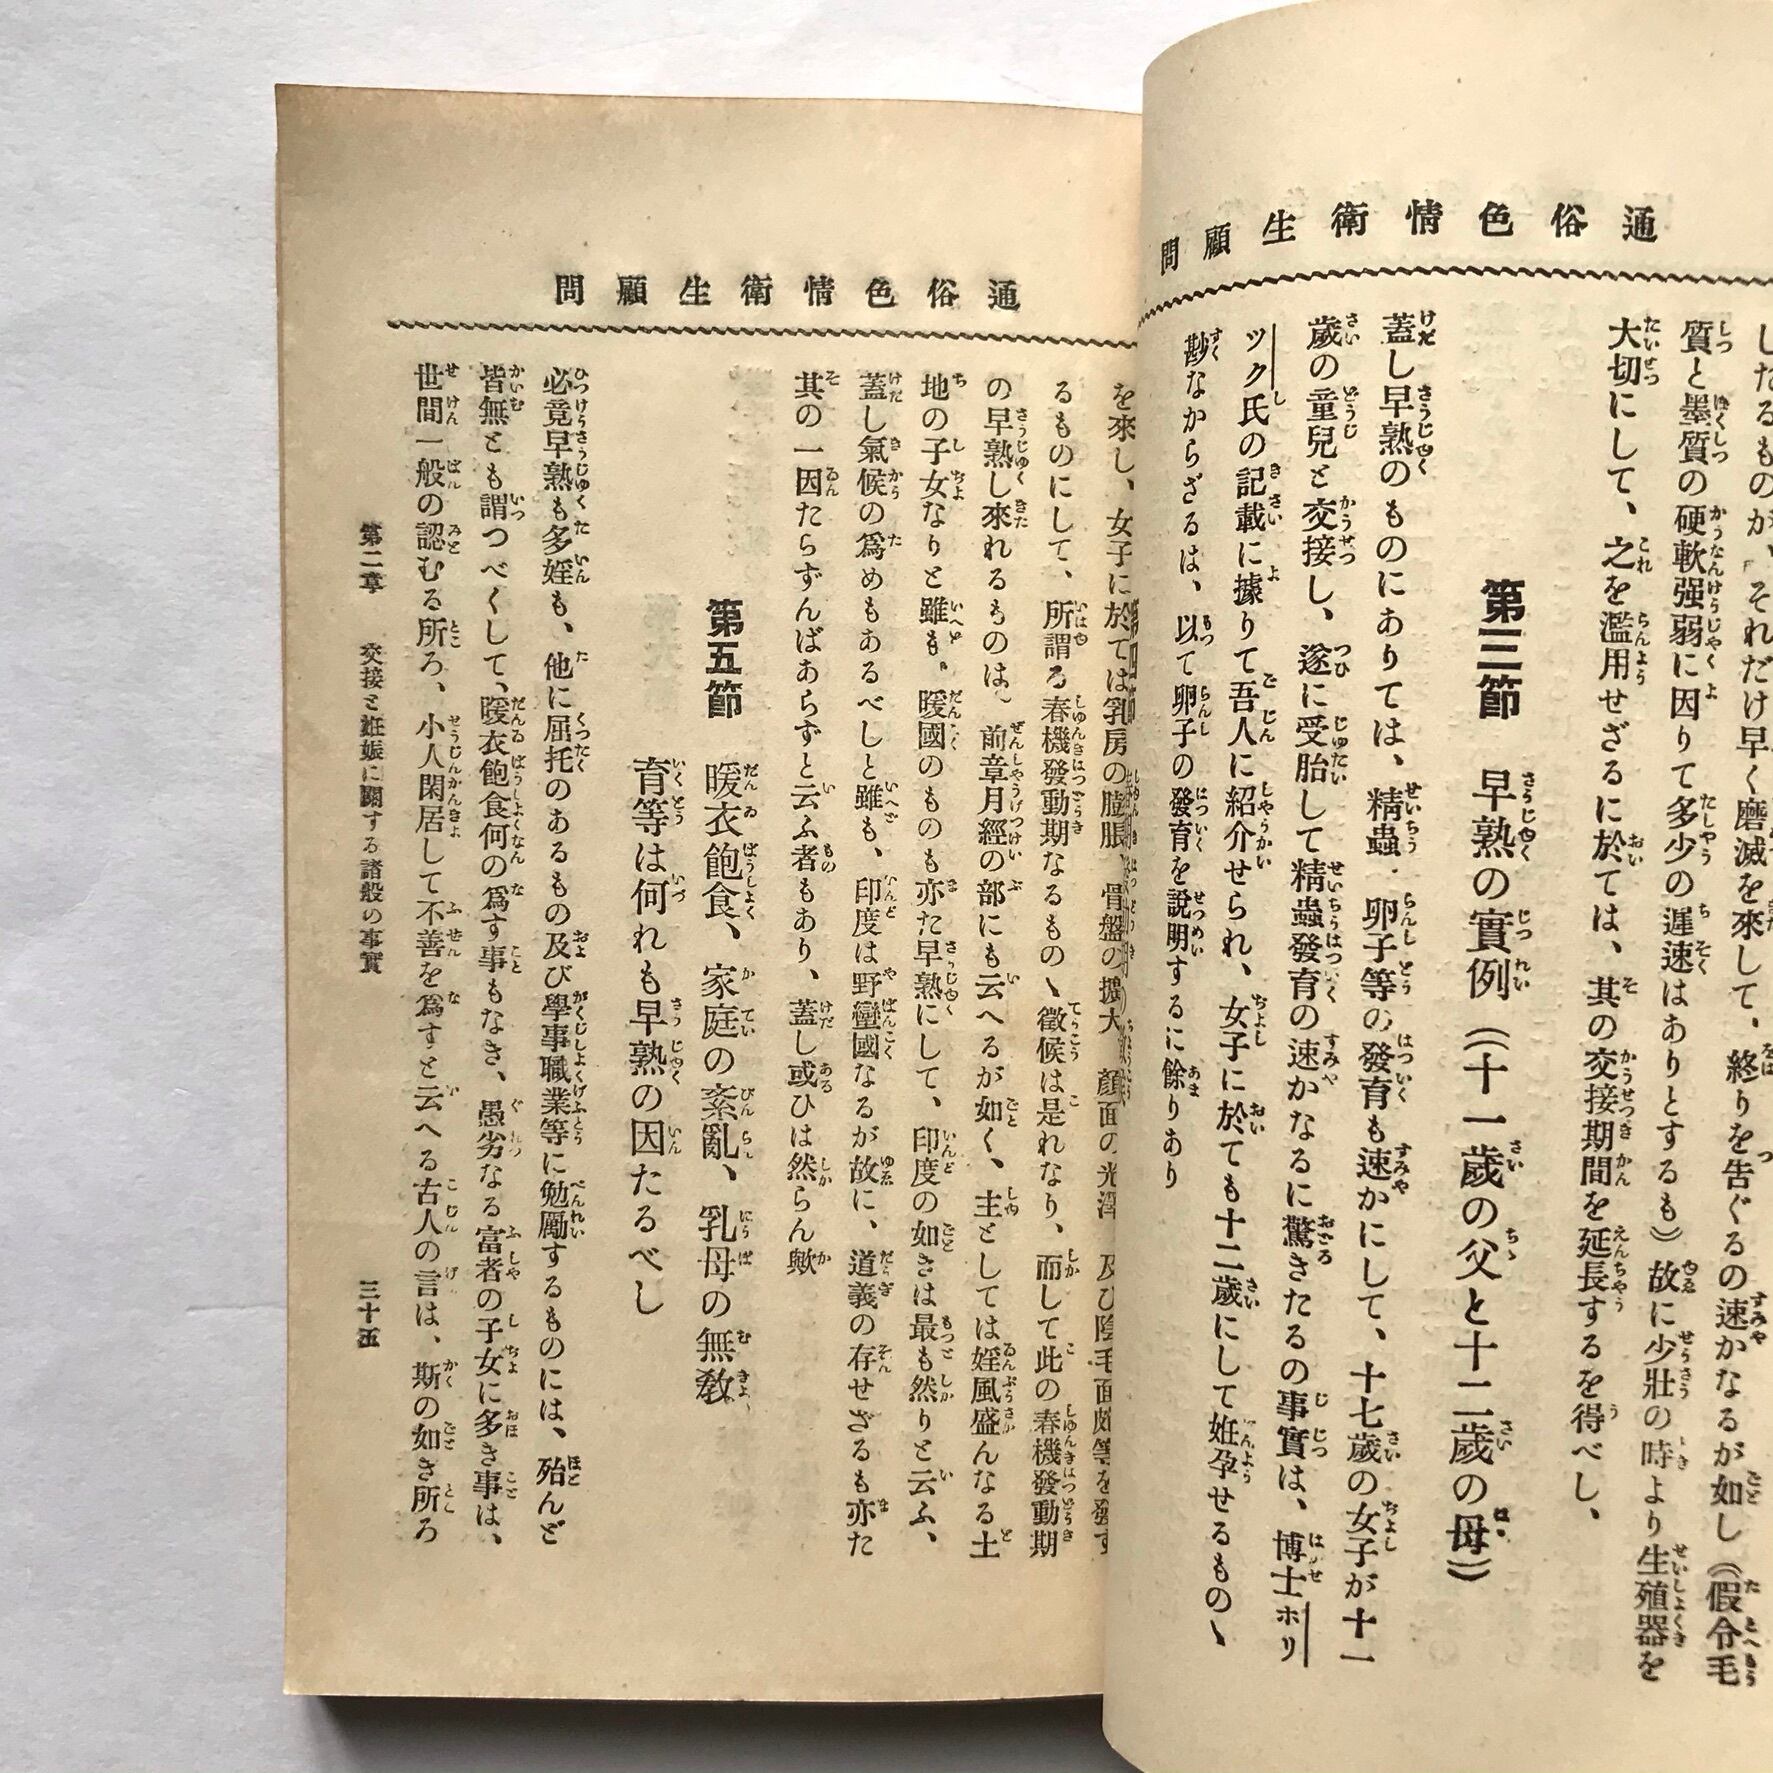 通俗色情衛生顧問
したるものが、それだけ早く磨滅を來して、終りを告ぐるの速かなるが如し（假令毛
質と墨質の硬軟强弱に因りて多少の遲速はありとするも）故に少壯の時より生殖器を
大切にして、之を濫用せざるに於ては、其の交接期間を延長するを得べし、
第三節 早熟の實例（十一歲の父と十二歲の母）
蓋し早熟のものにありては、精蟲、卵子等の發育も速かにして、十七歲の女子が十一
歲の童兒と交接し、遂に受胎して精蟲發育の速かなるに驚きたるの事實は、博士ホリ
ック氏の記載に據りて吾人に紹介せられ、女子に於ても十二歲にして姙孕せるものヽ
尠なからざるは、以て卵子の發育を說明するに餘りあり
通俗色情衛生顧問
を來し、女子に於ては乳房の膨脹、骨盤の擴大、顏面の光澤、及び陰毛面皰等を發す
るものにして、所謂る春機發動期なるものヽ徵候は是れなり、而して此の春機發動期
の早熟し來れるものは、前章月經の部にも云へるが如く、主としては婬風盛んなる土
地の子女なりと雖も、暖國のものも亦た早熟にして、印度の如きは最も然りと云ふ、
蓋し氣候の爲めもあるべしと雖も、印度は野蠻國なるが故に、道義の存せざるも亦た
其の一因たらずんばあらずと云ふ者もあり、蓋し或ひは然らん歟
第五節 暖衣飽食、家庭の紊亂、乳母の無敎
育等は何れも早熟の因たるべし
必竟早熟も多婬も、他に屈托のあるもの及び學事職業等に勉勵するものには、殆んど
皆無とも謂つべくして、暖衣飽食何の爲す事もなき、愚劣なる富者の子女に多き事は、
世間一般の認むる所ろ、小人閑居して不善を爲すと云へる古人の言は、斯の如き所ろ
第二章 交接と姙娠に關する諸般の事實 三十五